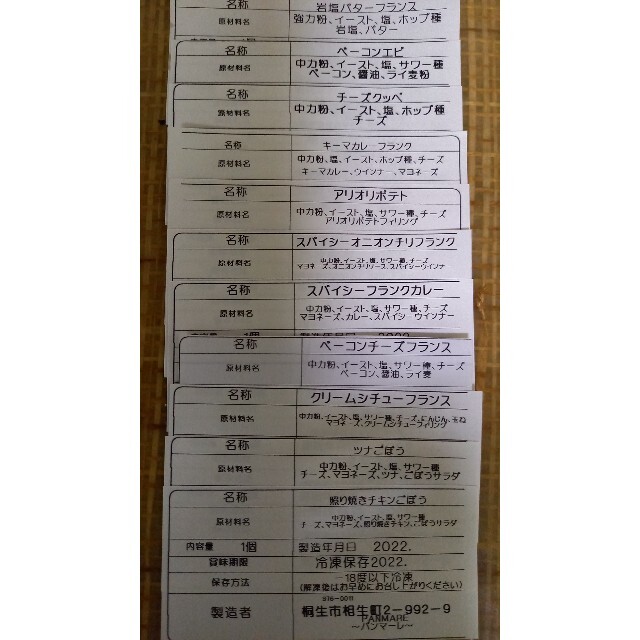 名称 岩塩バターフランス
原材料名 強力粉、イースト、塩、ホップ種
岩塩、バター
名称 ベーコンエピ
原材料名 中力粉、イースト、塩、サワー種
ベーコン、醤油、ライ麦粉
名称 チーズクッペ
原材料名 中力粉、イースト、塩、ホップ種
チーズ
名称 キーマカレーフランク
原材料名 中力粉、塩、イースト、ホップ種、チーズ
キーマカレー、ウインナー、マヨネーズ
名称 アリオリポテト
原材料名 中力粉、イースト、塩、サワー種、チーズ
アリオリポテトフィリング
名称 スパイシーオニオンチリフランク
原材料名 中力粉、イースト、塩、サワー種、チーズ
マヨネーズ、オニオンチリソース、スパイシーウインナ
名称 スパイシーフランクカレー
原材料名 中力粉、イースト、塩、サワー種、チーズ
マヨネーズ、カレー、スパイシーウインナー
内容量 1個 製造年月日 2022.
名称 ベーコンチーズフランス
原材料名 中力粉、イースト、塩、サワー種、チーズ
ベーコン、醤油、ライ麦
名称 クリームシチューフランス
原材料名 中力粉、イースト、塩、サワー種、チーズ、にんじん、玉ね
マヨネーズ、クリームシチューフィリング
名称 ツナごぼう
原材料名 中力粉、イースト、塩、サワー種
チーズ、マヨネーズ、ツナ、ごぼうサラダ
名称 照り焼きチキンごぼう
原材料名 中力粉、イースト、塩、サワー種
チーズ、マヨネーズ、照り焼きチキン、ごぼうサラダ
内容量 1個 製造年月日 2022.
賞味期限 冷凍保存2022.
保存方法 -18度以下冷凍
(解凍後はお早めにお召し上がりください)
376-0011
製造者 桐生市相生町2-992-9
PANMARE
〜パンマーレ〜